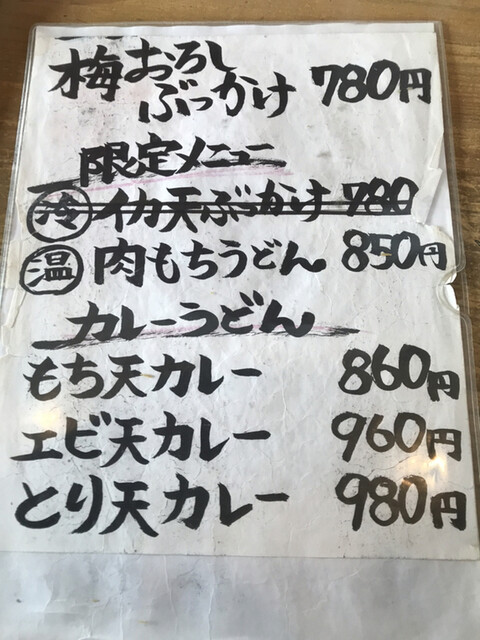 梅おろし
ぶっかけ 780円
限定メニュー
冷 イカ天ぶっかけ 780
温 肉もちうどん 850円
カレーうどん
もち天カレー 860円
エビ天カレー 960円
とり天カレー 980円